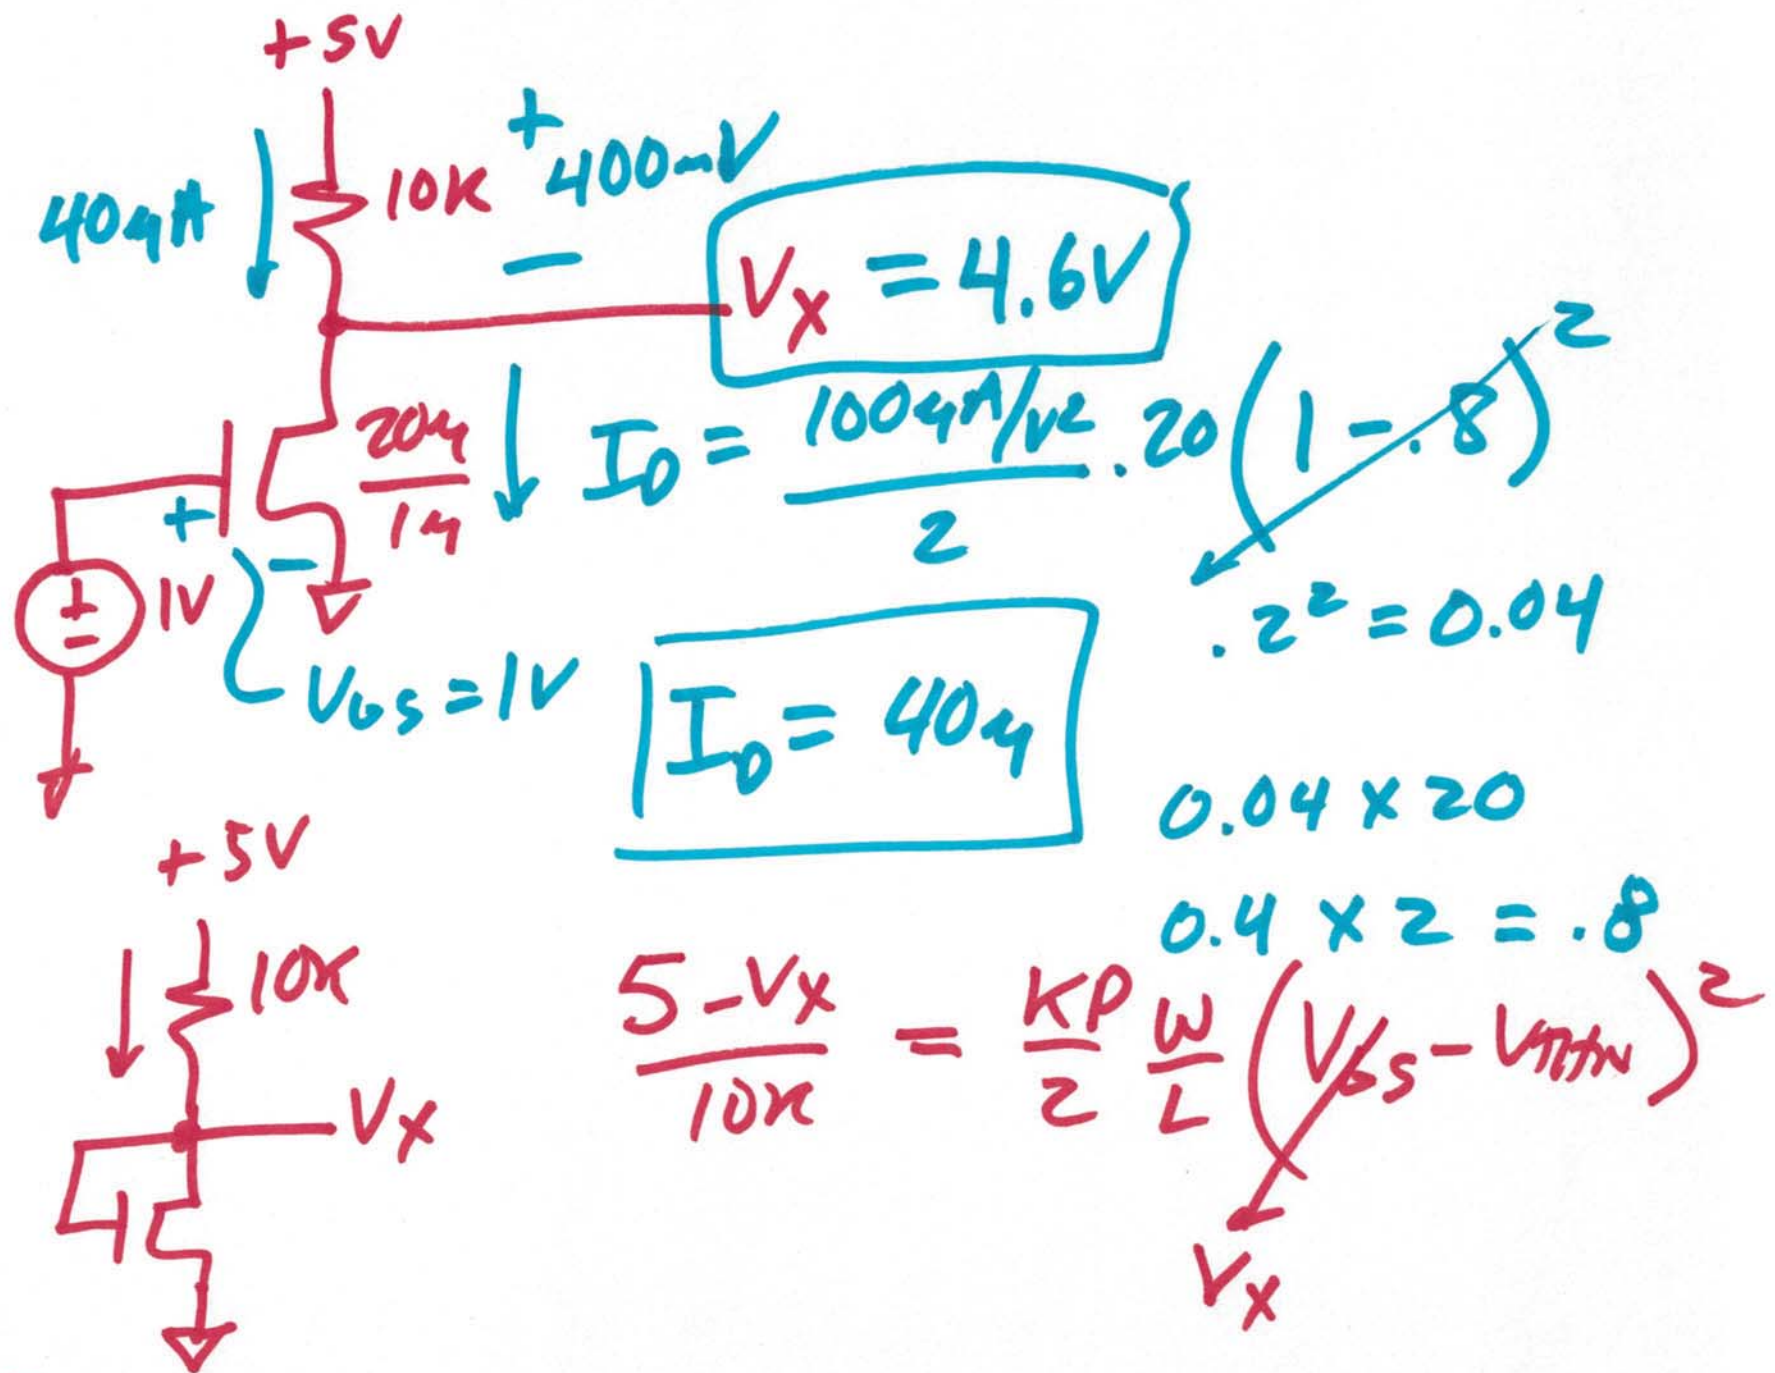 +5V
40μA
10K
+
400mV
−
Vx = 4.6V
20μ
1μ
ID = 100μA/V² / 2 · 20 (1 − .8)²
+
−
+
−
1V
VGS = 1V
.2² = 0.04
ID = 40μ
0.04 × 20
0.4 × 2 = .8
+5V
10K
Vx
5 − Vx / 10K = KP / 2 W / L (VGS − VTHN)²
Vx